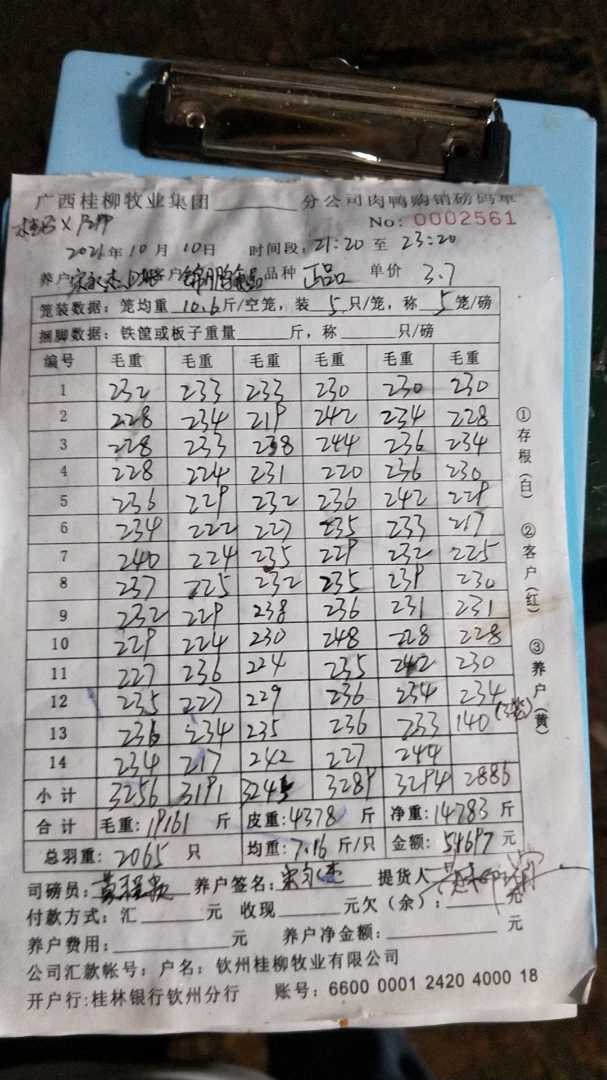 广西桂柳牧业集团______分公司肉鸭购销磅码单
No: 0002561
2021年10月10日 时间段: 21:20 至 23:20
养户宋永杰 客户 品种 正品 单价 3.7
笼装数据: 笼均重 10.6 斤/空笼, 装 5 只/笼, 称 5 笼/磅
捆脚数据: 铁筐或板子重量______斤, 称______只/磅
编号 毛重 毛重 毛重 毛重 毛重 毛重
1 232 233 233 230 230 230
2 228 234 219 242 234 228
3 228 233 238 244 236 234
4 228 224 231 220 236 230
5 236 229 232 236 242 229
6 234 222 227 235 233 217
7 240 224 235 229 232 225
8 237 225 232 235 239 230
9 232 229 238 236 231 231
10 229 224 230 248 228 228
11 227 236 224 235 242 230
12 235 227 229 236 234 234
13 236 234 235 236 233 140
14 234 217 242 227 244
小计 3256 3191 3245 3289 3294 2886
合计 毛重: 19161 斤 皮重: 4378 斤 净重: 14783 斤
总羽重: 2065 只 均重: 7.16 斤/只 金额: 54697 元
司磅员: 养户签名: 宋永杰 提货人
付款方式: 汇______元 收现______元欠(余): 元
养户费用:______元 养户净金额:______元
公司汇款帐号: 户名: 钦州桂柳牧业有限公司
开户行:桂林银行钦州分行 账号: 6600 0001 2420 4000 18
①存根(白) ②客户(红) ③养户(黄)